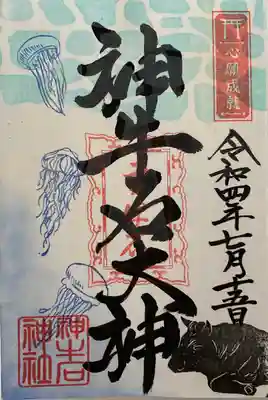 心願成就
令和四年七月十五日
神牛石大神
神石
神社